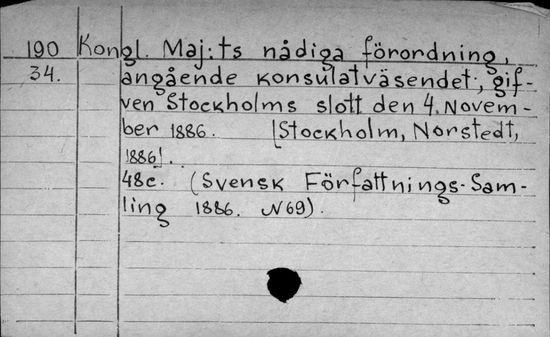 190 Kongl. Maj:ts nådiga förordning,
34. angående konsulatväsendet; gif-
ven Stockholms slott den 4. Novem-
ber 1886. [Stockholm, Norstedt,
1886].
48c. (Svensk Författnings-Sam-
ling 1886. N69).